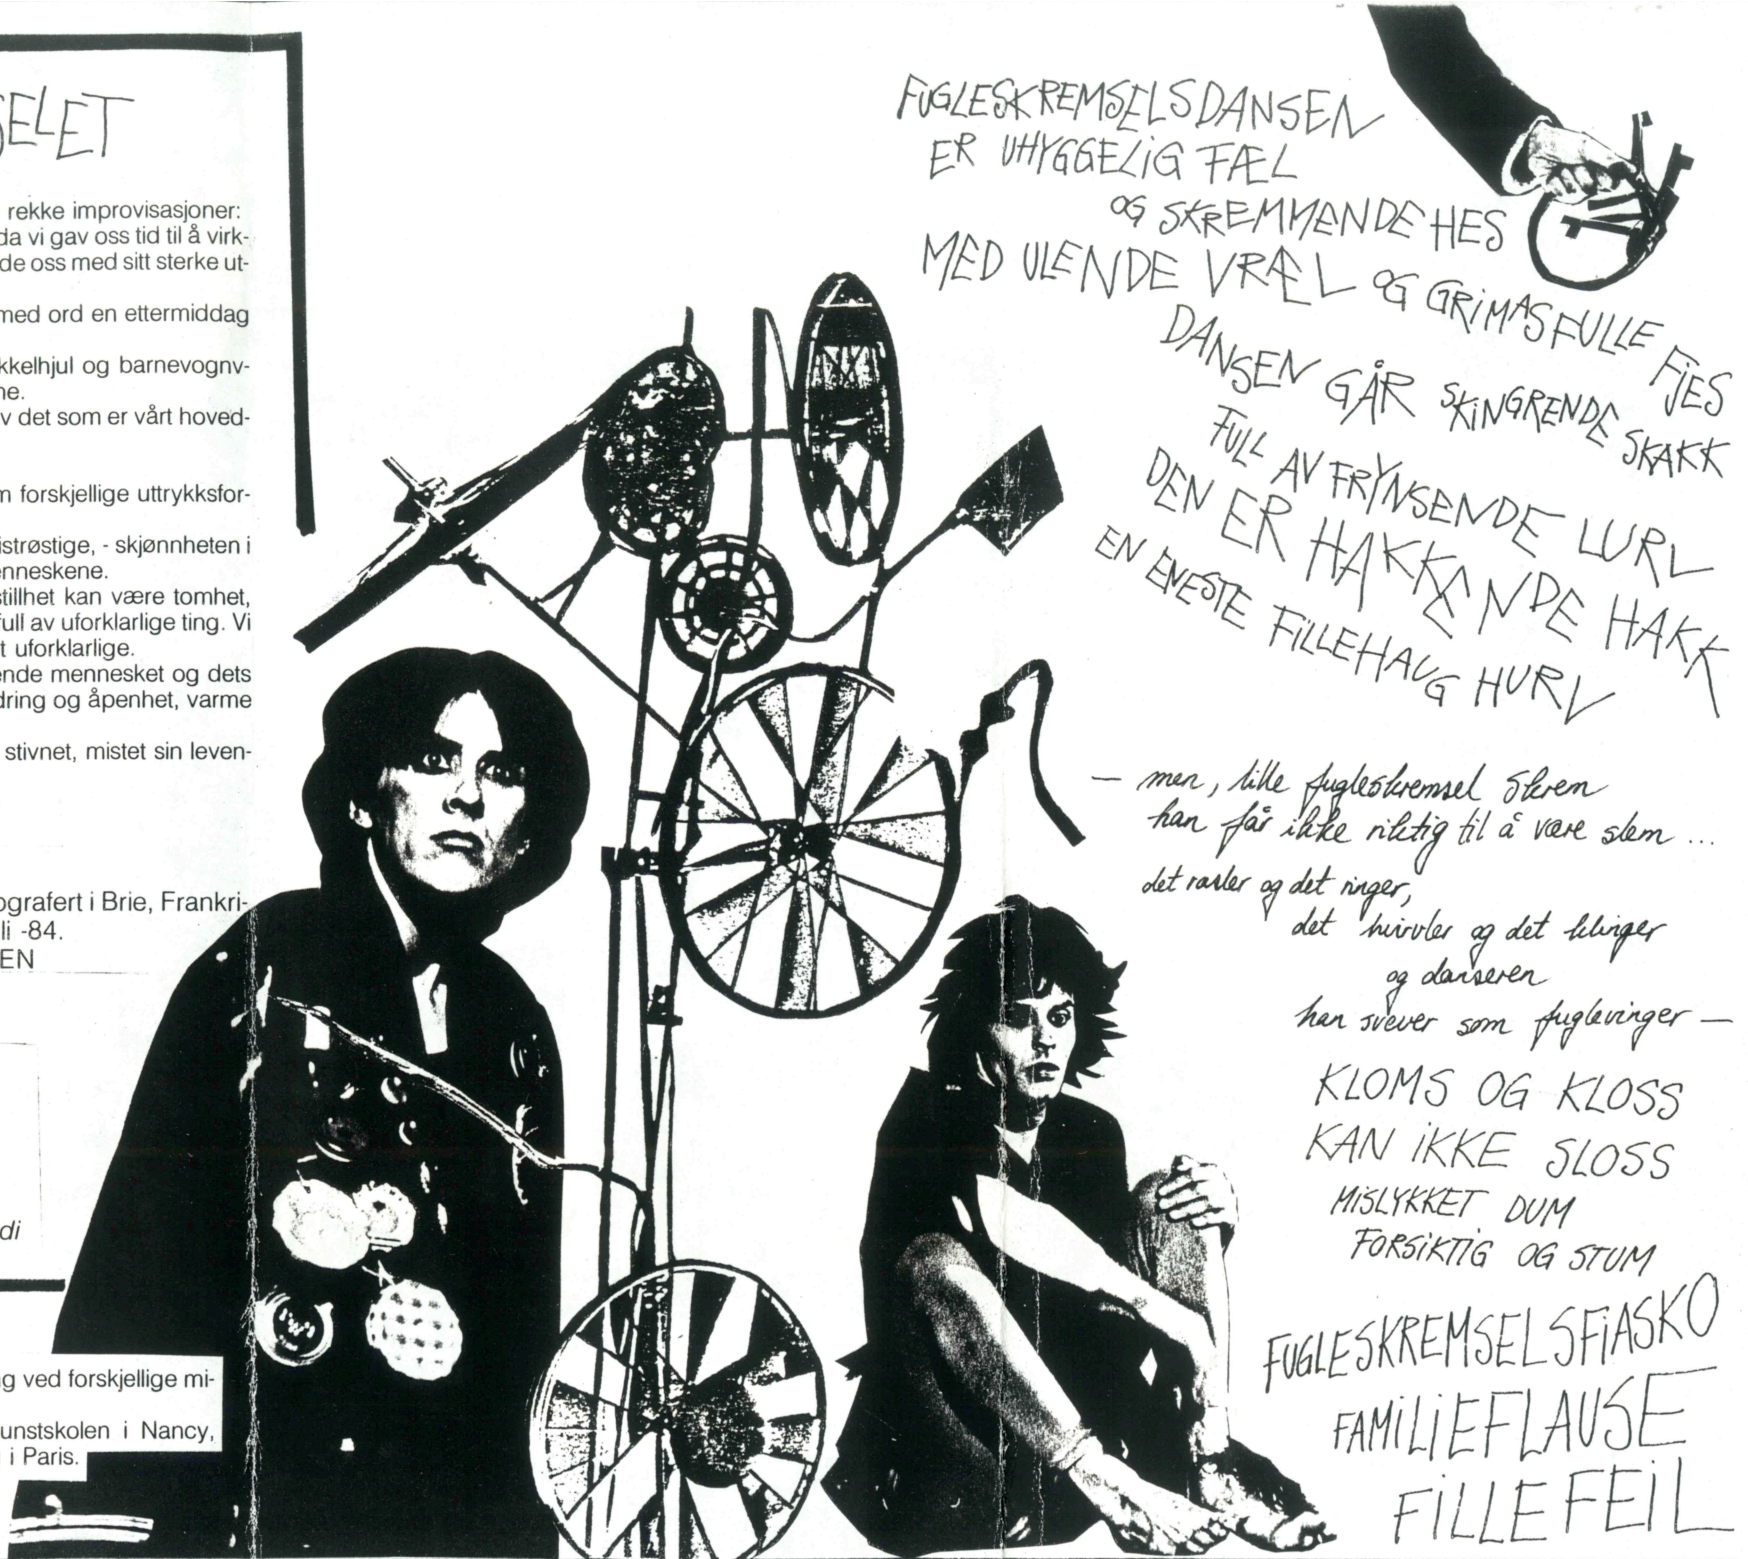 SELET
rekke improvisasjoner:
da vi gav oss tid til å virk-
de oss med sitt sterke ut-
med ord en ettermiddag
kkelhjul og barnevognv-
ne.
v det som er vårt hoved-
m forskjellige uttrykksfor-
istrøstige, - skjønnheten i
enneskene.
stillhet kan være tomhet,
full av uforklarlige ting. Vi
t uforklarlige.
ende mennesket og dets
dring og åpenhet, varme
stivnet, mistet sin leven-
ografert i Brie, Frankri-
li -84.
EN
di
g ved forskjellige mi-
unstskolen i Nancy,
i Paris.
FUGLESKREMSELSDANSEN
ER UHYGGELIG FÆL
OG SKREMMENDE HES
MED ULENDE VRÆL OG GRIMASFULLE FJES
DANSEN GÅR SKINGRENDE SKAKK
FULL AV FRYNSENDE LURV
DEN ER HAKKENDE HAKK
EN ENESTE FILLEHAUG HURV
— men, lille fugleskremsel skrem
han får ikke riktig til å være slem ...
det rasler og det ringer,
det hvirvler og det klinger
og danseren
han svever som fuglevinger —
KLOMS OG KLOSS
KAN IKKE SLOSS
MISLYKKET DUM
FORSIKTIG OG STUM
FUGLESKREMSELSFIASKO
FAMILIEFLAUSE
FILLEFEIL